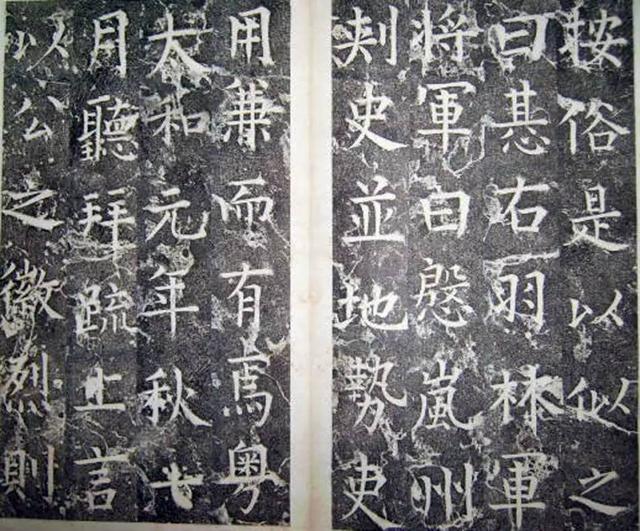 按俗是以似之
曰惎右羽林軍
將軍曰慇嵐州
刺史並地勢吏
用兼而有焉粤
大和元年秋七
月聽拜疏上言
以公之徽烈則